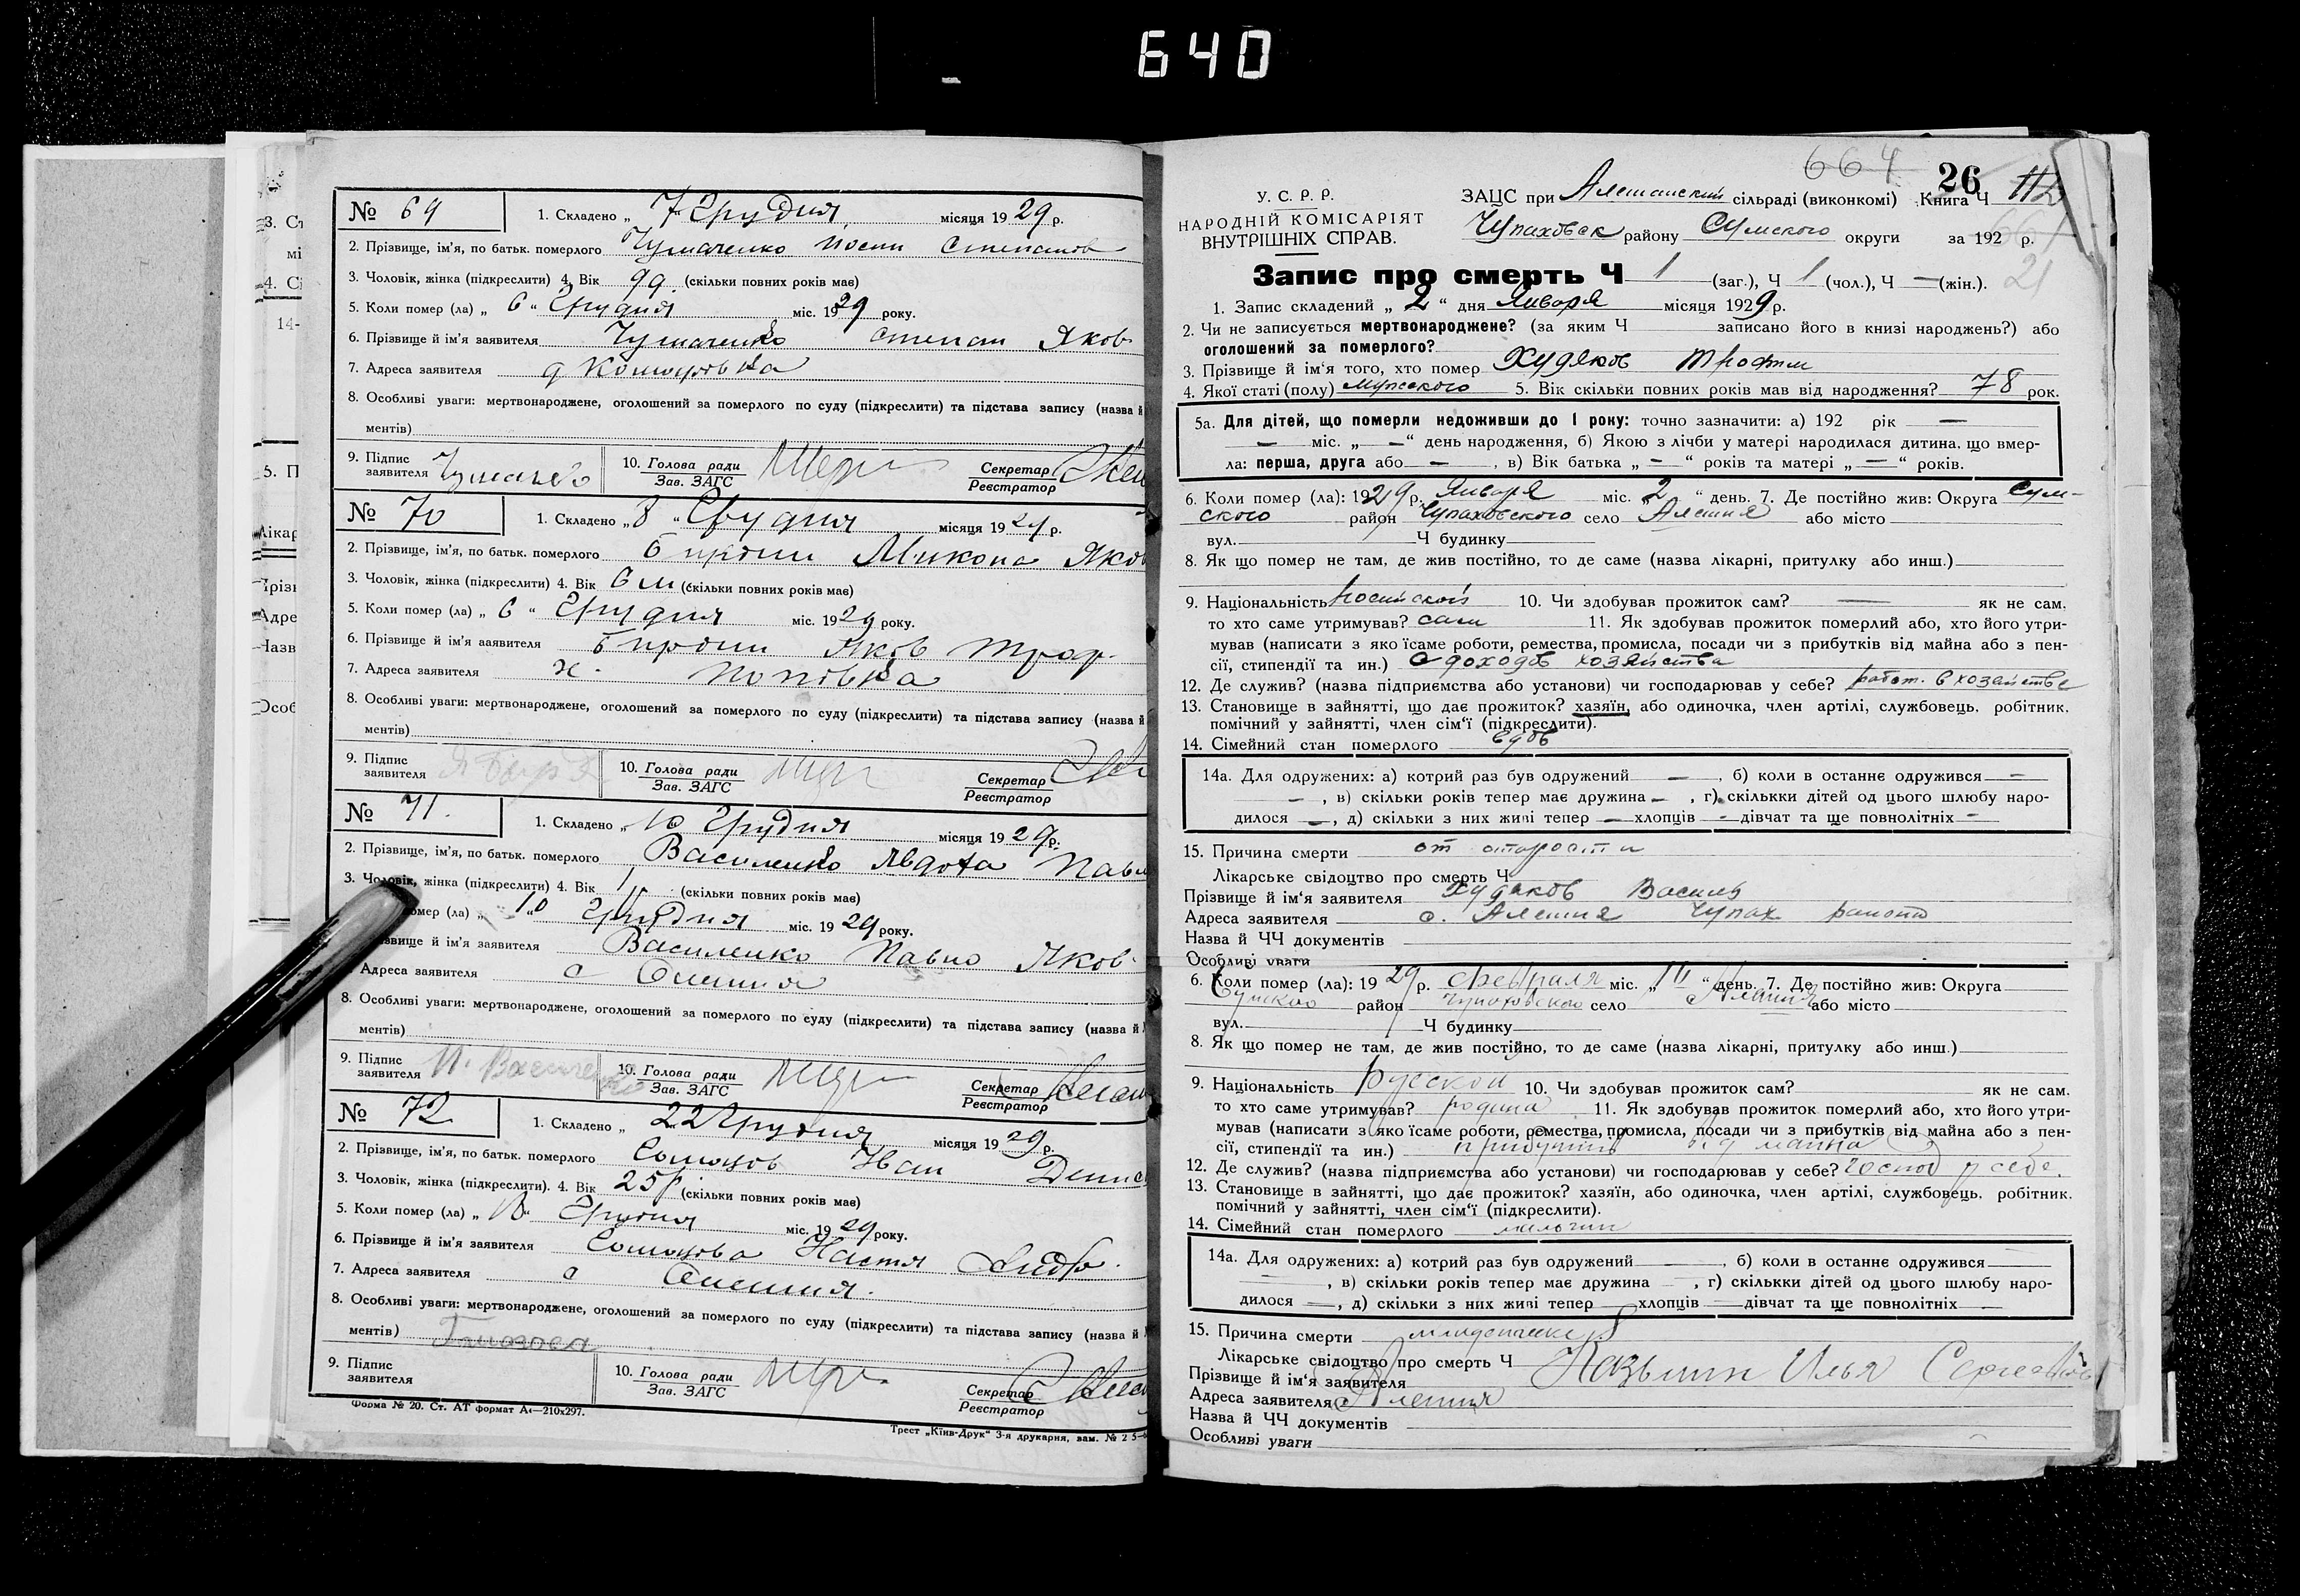 640
№ 69
1. Складено „ 7 Грудня місяця 1929 р.
2. Прізвище, ім'я, по батьк. померлого Чумаченко Степанов
3. Чоловік, жінка (підкреслити) 4. Вік (скільки повних років має)
5. Коли помер (ла) „ 6 “ Грудня міс. 1929 року.
6. Прізвище й ім'я заявителя Чумаченко Степан Яков
7. Адреса заявителя
8. Особливі уваги: мертвонароджене, оголошений за померлого по суду (підкреслити) та підстава запису (назва й
ментів)
9. Підпис заявителя
10. Голова ради
Зав. ЗАГС
Секретар
Реєстратор
№ 70
1. Складено „ 8 “ Грудня місяця 1929 р.
2. Прізвище, ім'я, по батьк. померлого Микола Яков
3. Чоловік, жінка (підкреслити) 4. Вік 6 м (скільки повних років має)
5. Коли помер (ла) „ 6 “ Грудня міс. 1929 року.
6. Прізвище й ім'я заявителя Яков
7. Адреса заявителя х. Попівка
8. Особливі уваги: мертвонароджене, оголошений за померлого по суду (підкреслити) та підстава запису (назва й
ментів)
9. Підпис заявителя
10. Голова ради
Зав. ЗАГС
Секретар
Реєстратор
№ 71.
1. Складено „ 10 Грудня місяця 1929 р.
2. Прізвище, ім'я, по батьк. померлого Василенко Явдоха Павл
3. Чоловік, жінка (підкреслити) 4. Вік (скільки повних років має)
омер (ла) „ 10 “ Грудня міс. 1929 року.
звище й ім'я заявителя Василенко Павло Яков
Адреса заявителя с Олешня
8. Особливі уваги: мертвонароджене, оголошений за померлого по суду (підкреслити) та підстава запису (назва й
ментів)
9. Підпис заявителя П. Василенко
10. Голова ради
Зав. ЗАГС
Секретар
Реєстратор
№ 72
1. Складено „ 22 Грудня місяця 1929 р.
2. Прізвище, ім'я, по батьк. померлого Іван Денис
3. Чоловік, жінка (підкреслити). 4. Вік 25 р (скільки повних років має)
5. Коли помер (ла) „ “ Грудня міс. 1929 року.
6. Прізвище й ім'я заявителя Настя
7. Адреса заявителя с Олешня.
8. Особливі уваги: мертвонароджене, оголошений за померлого по суду (підкреслити) та підстава запису (назва й
ментів)
9. Підпис заявителя
10. Голова ради
Зав. ЗАГС
Секретар
Реєстратор
Форма № 20. Ст. АТ формат А4—210х297.
Трест „Київ-Друк“ 3-я друкарня, зам. № 2
664
26
У. С. Р. Р.
НАРОДНІЙ КОМІСАРІЯТ
ВНУТРІШНІХ СПРАВ.
ЗАЦС при Алешанский сільраді (виконкомі) Книга Ч
Чупаховск району Сумского округи за 192 р.
21
Запис про смерть Ч 1 (заг.), Ч 1 (чол.), Ч — (жін.).
1. Запис складений „ 2 “ дня Января місяця 1929 р.
2. Чи не записується мертвонароджене? (за яким Ч записано його в книзі народжень?) або
оголошений за померлого?
3. Прізвище й ім'я того, хто помер Худяков Трофим
4. Якої статі (полу) мужского 5. Вік скільки повних років мав від народження? 78 рок.
5а. Для дітей, що померли недоживши до 1 року: точно зазначити: а) 192 рік —
— міс. „ — “ день народження, б) Якою з лічби у матері народилася дитина. що вмер-
ла: перша, друга або — , в) Вік батька „ — “ років та матері „ — “ років.
6. Коли помер (ла): 1929 р. Января міс. „ 2 “ день. 7. Де постійно жив: Округа Сум-
ского район Чупаховского село Алешня або місто
вул. Ч будинку
8. Як що помер не там, де жив постійно, то де саме (назва лікарні, притулку або инш.)
9. Національність 10. Чи здобував прожиток сам? — як не сам.
то хто саме утримував? сам 11. Як здобував прожиток померлий або, хто його утри-
мував (написати з яко їсаме роботи, ремества, промисла, посади чи з прибутків від майна або з пен-
сії, стипендії та ин.) С доходов хозяйства
12. Де служив? (назва підприємства або установи) чи господарював у себе? работ. в хозяйстве
13. Становище в зайнятті, що дає прожиток? хазяїн, або одиночка, член артілі, службовець. робітник.
помічний у зайнятті, член сім'ї (підкреслити).
14. Сімейний стан померлого вдов
14а. Для одружених: а) котрий раз був одружений — , б) коли в останнє одружився —
— , в) скільки років тепер має дружина — , г) скількки дітей од цього шлюбу наро-
дилося — , д) скільки з них живі тепер — хлопців — дівчат та ще повнолітніх —
15. Причина смерти от старости
Лікарське свідоцтво про смерть Ч
Прізвище й ім'я заявителя Худяков Василий
Адреса заявителя с. Алешня Чупах района
Назва й ЧЧ документів
Особливі уваги
6. Коли помер (ла): 1929 р. февраля міс. „ “ день. 7. Де постійно жив: Округа
Сумского район Чупаховского село Алешня або місто
вул. Ч будинку
8. Як що помер не там, де жив постійно, то де саме (назва лікарні, притулку або инш.)
9. Національність русский 10. Чи здобував прожиток сам? як не сам.
то хто саме утримував? родина 11. Як здобував прожиток померлий або, хто його утри-
мував (написати з яко їсаме роботи, ремества, промисла, посади чи з прибутків від майна або з пен-
сії, стипендії та ин.) прибутків від майна
12. Де служив? (назва підприємства або установи) чи господарював у себе? господ у себе.
13. Становище в зайнятті, що дає прожиток? хазяїн, або одиночка, член артілі, службовець. робітник.
помічний у зайнятті, член сім'ї (підкреслити).
14. Сімейний стан померлого
14а. Для одружених: а) котрий раз був одружений , б) коли в останнє одружився
— , в) скільки років тепер має дружина — , г) скількки дітей од цього шлюбу наро-
дилося — , д) скільки з них живі тепер хлопців дівчат та ще повнолітніх —
15. Причина смерти
Лікарське свідоцтво про смерть Ч
Прізвище й ім'я заявителя Казьмин Илья Сергеевич
Адреса заявителя с Алешня
Назва й ЧЧ документів
Особливі уваги